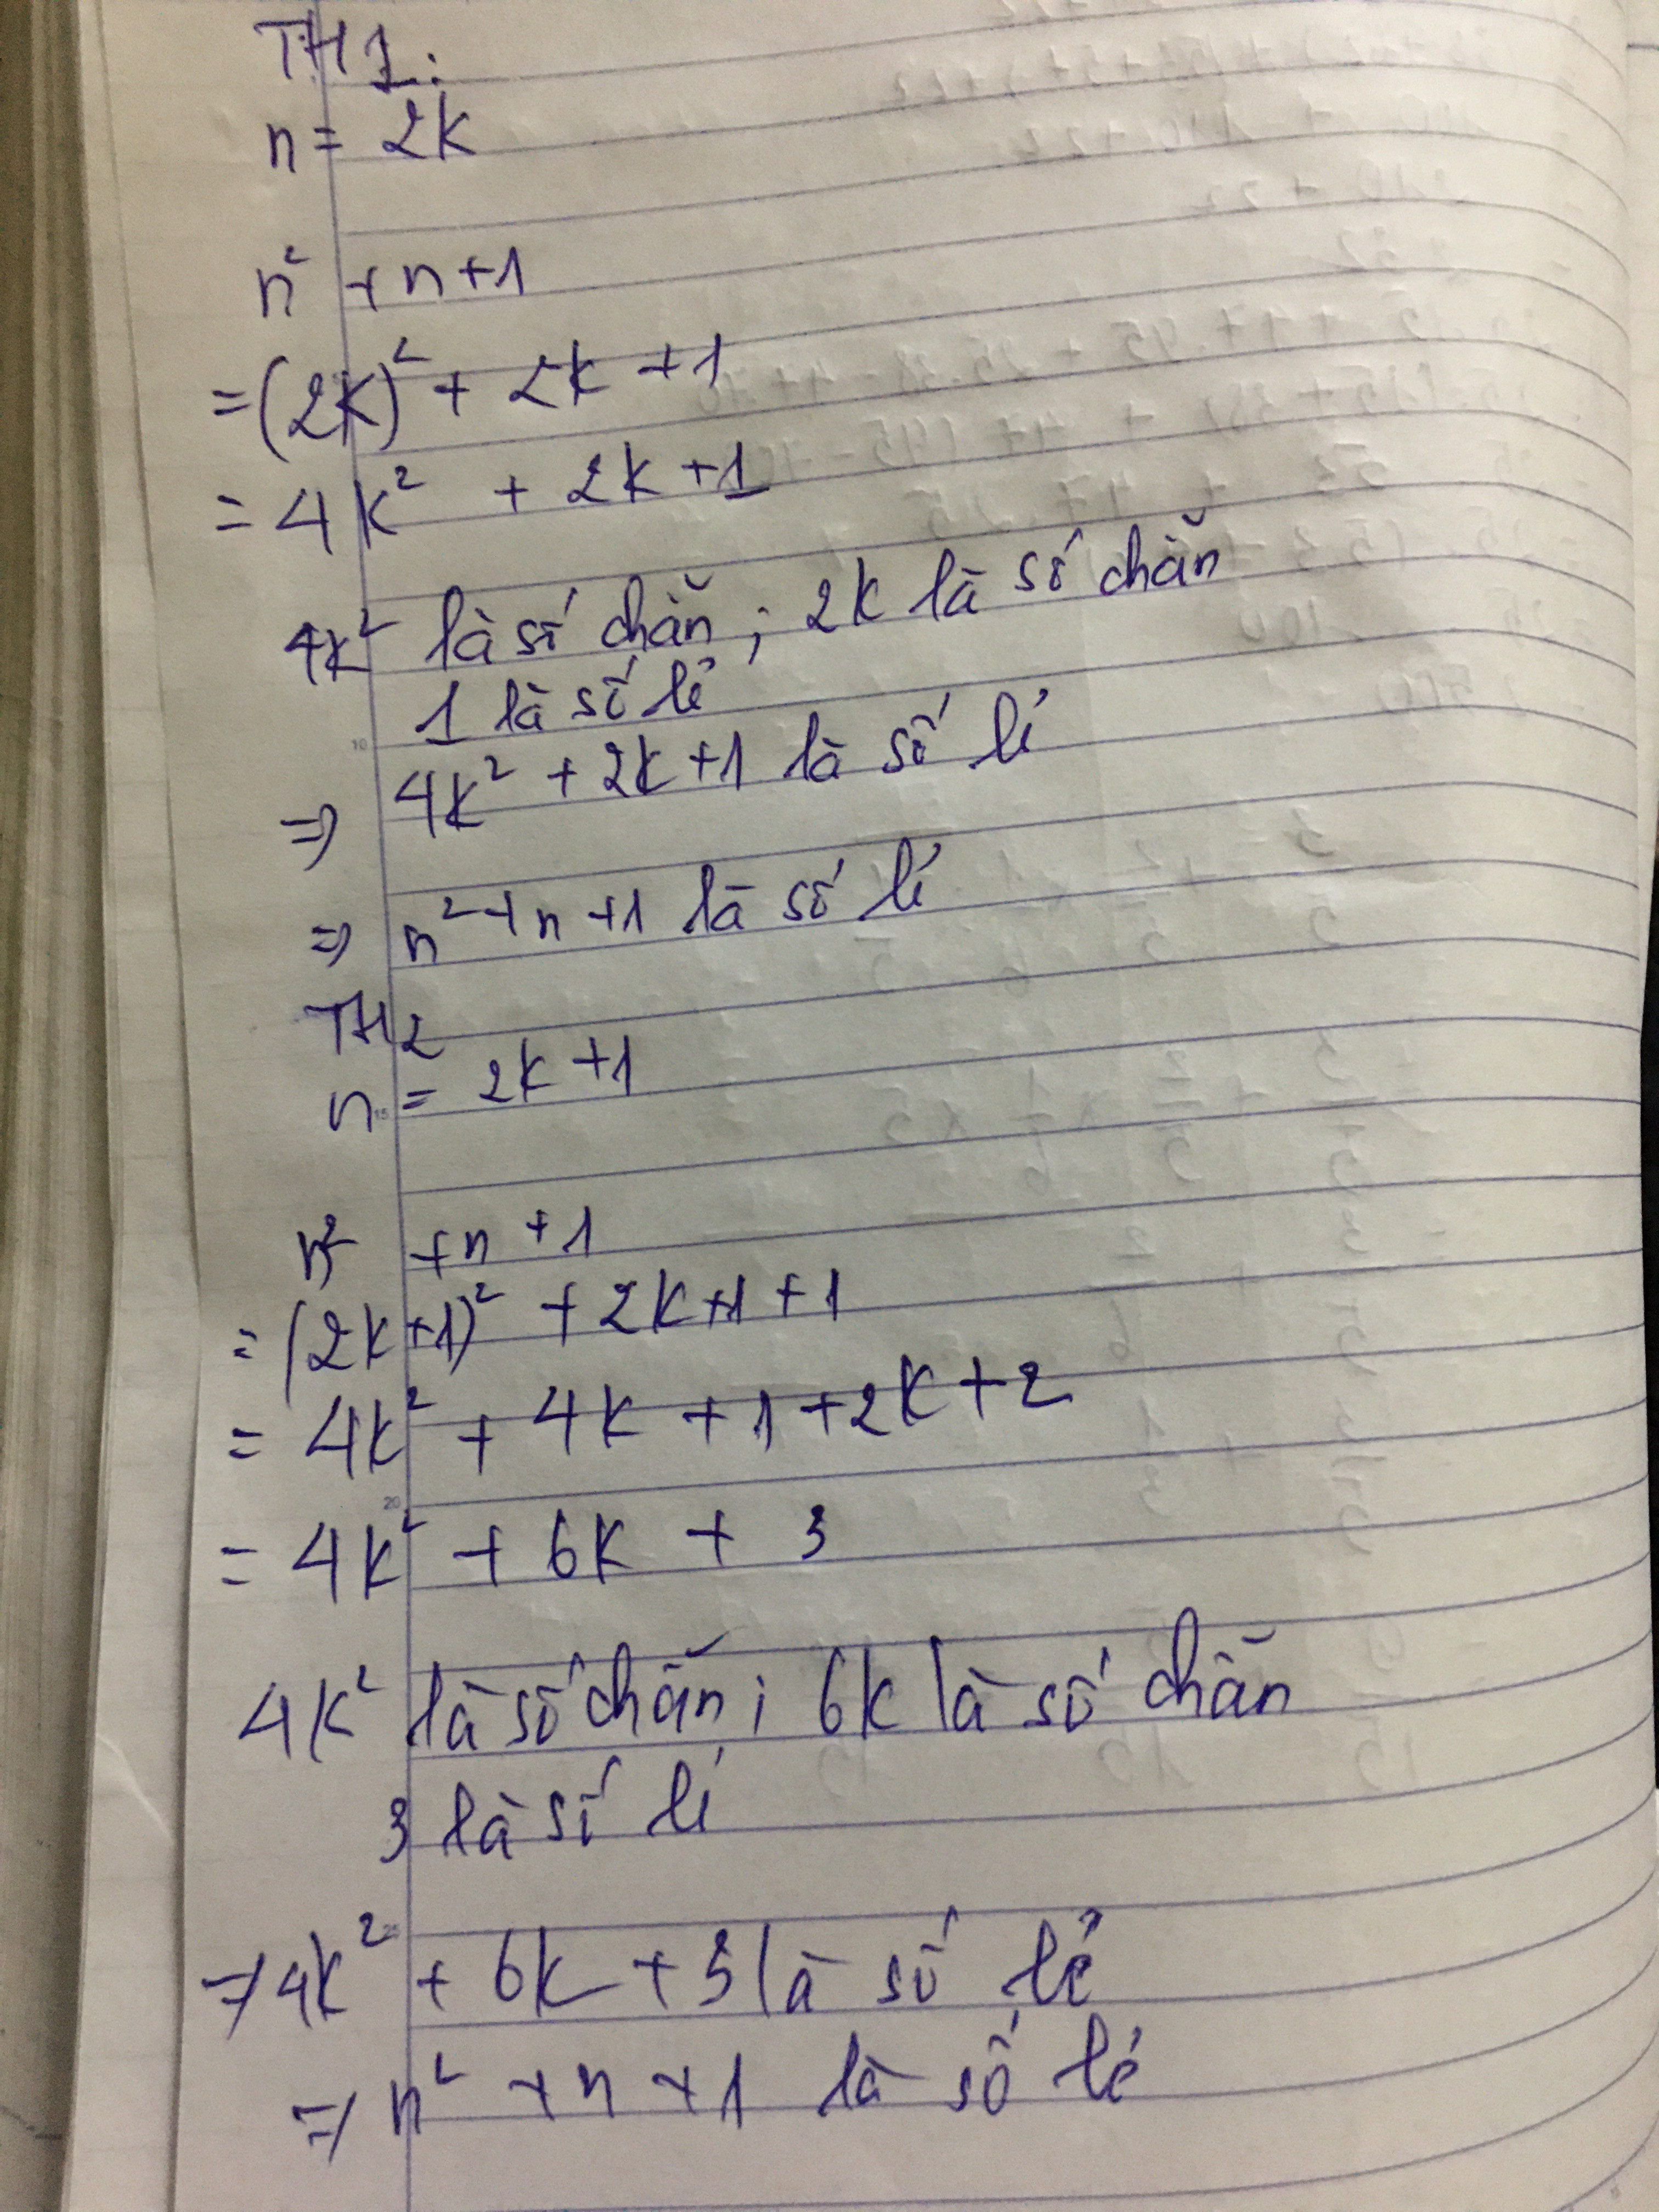 TH1:
n = 2k
n² + n + 1
= (2k)² + 2k + 1
= 4k² + 2k + 1
4k² là số chẵn ; 2k là số chẵn
1 là số lẻ
⇒ 4k² + 2k + 1 là số lẻ
⇒ n² + n + 1 là số lẻ
TH2
n = 2k + 1
n² + n + 1
= (2k + 1)² + 2k + 1 + 1
= 4k² + 4k + 1 + 2k + 2
= 4k² + 6k + 3
4k² là số chẵn ; 6k là số chẵn
3 là số lẻ
⇒ 4k² + 6k + 3 là số lẻ
⇒ n² + n + 1 là số lẻ